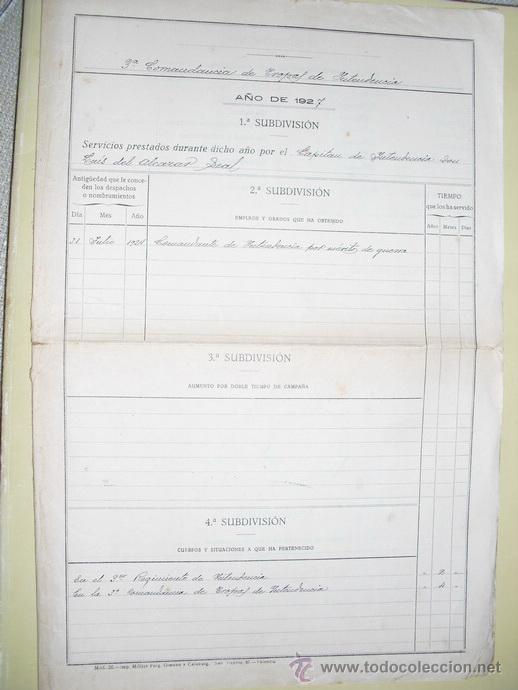 3ª Comandancia de Tropas de Intendencia
AÑO DE 1927
1.ª SUBDIVISIÓN
Servicios prestados durante dicho año por el Capitan de Intendencia Don
Luis del Alcazar Leal
Antigüedad que le conceden los despachos o nombramientos
2.ª SUBDIVISIÓN
EMPLEOS Y GRADOS QUE HA OBTENIDO
TIEMPO
que los ha servido
Día Mes Año
Años Meses Días
31 Julio 1924 Comandante de Intendencia por méritos de guerra
3.ª SUBDIVISIÓN
AUMENTO POR DOBLE TIEMPO DE CAMPAÑA
4.ª SUBDIVISIÓN
CUERPOS Y SITUACIONES A QUE HA PERTENECIDO
En el 3er Regimiento de Intendencia " 2 "
En la 3ª Comandancia de Tropas de Intendencia " 4 "
todocoleccion
www.todocoleccion.net